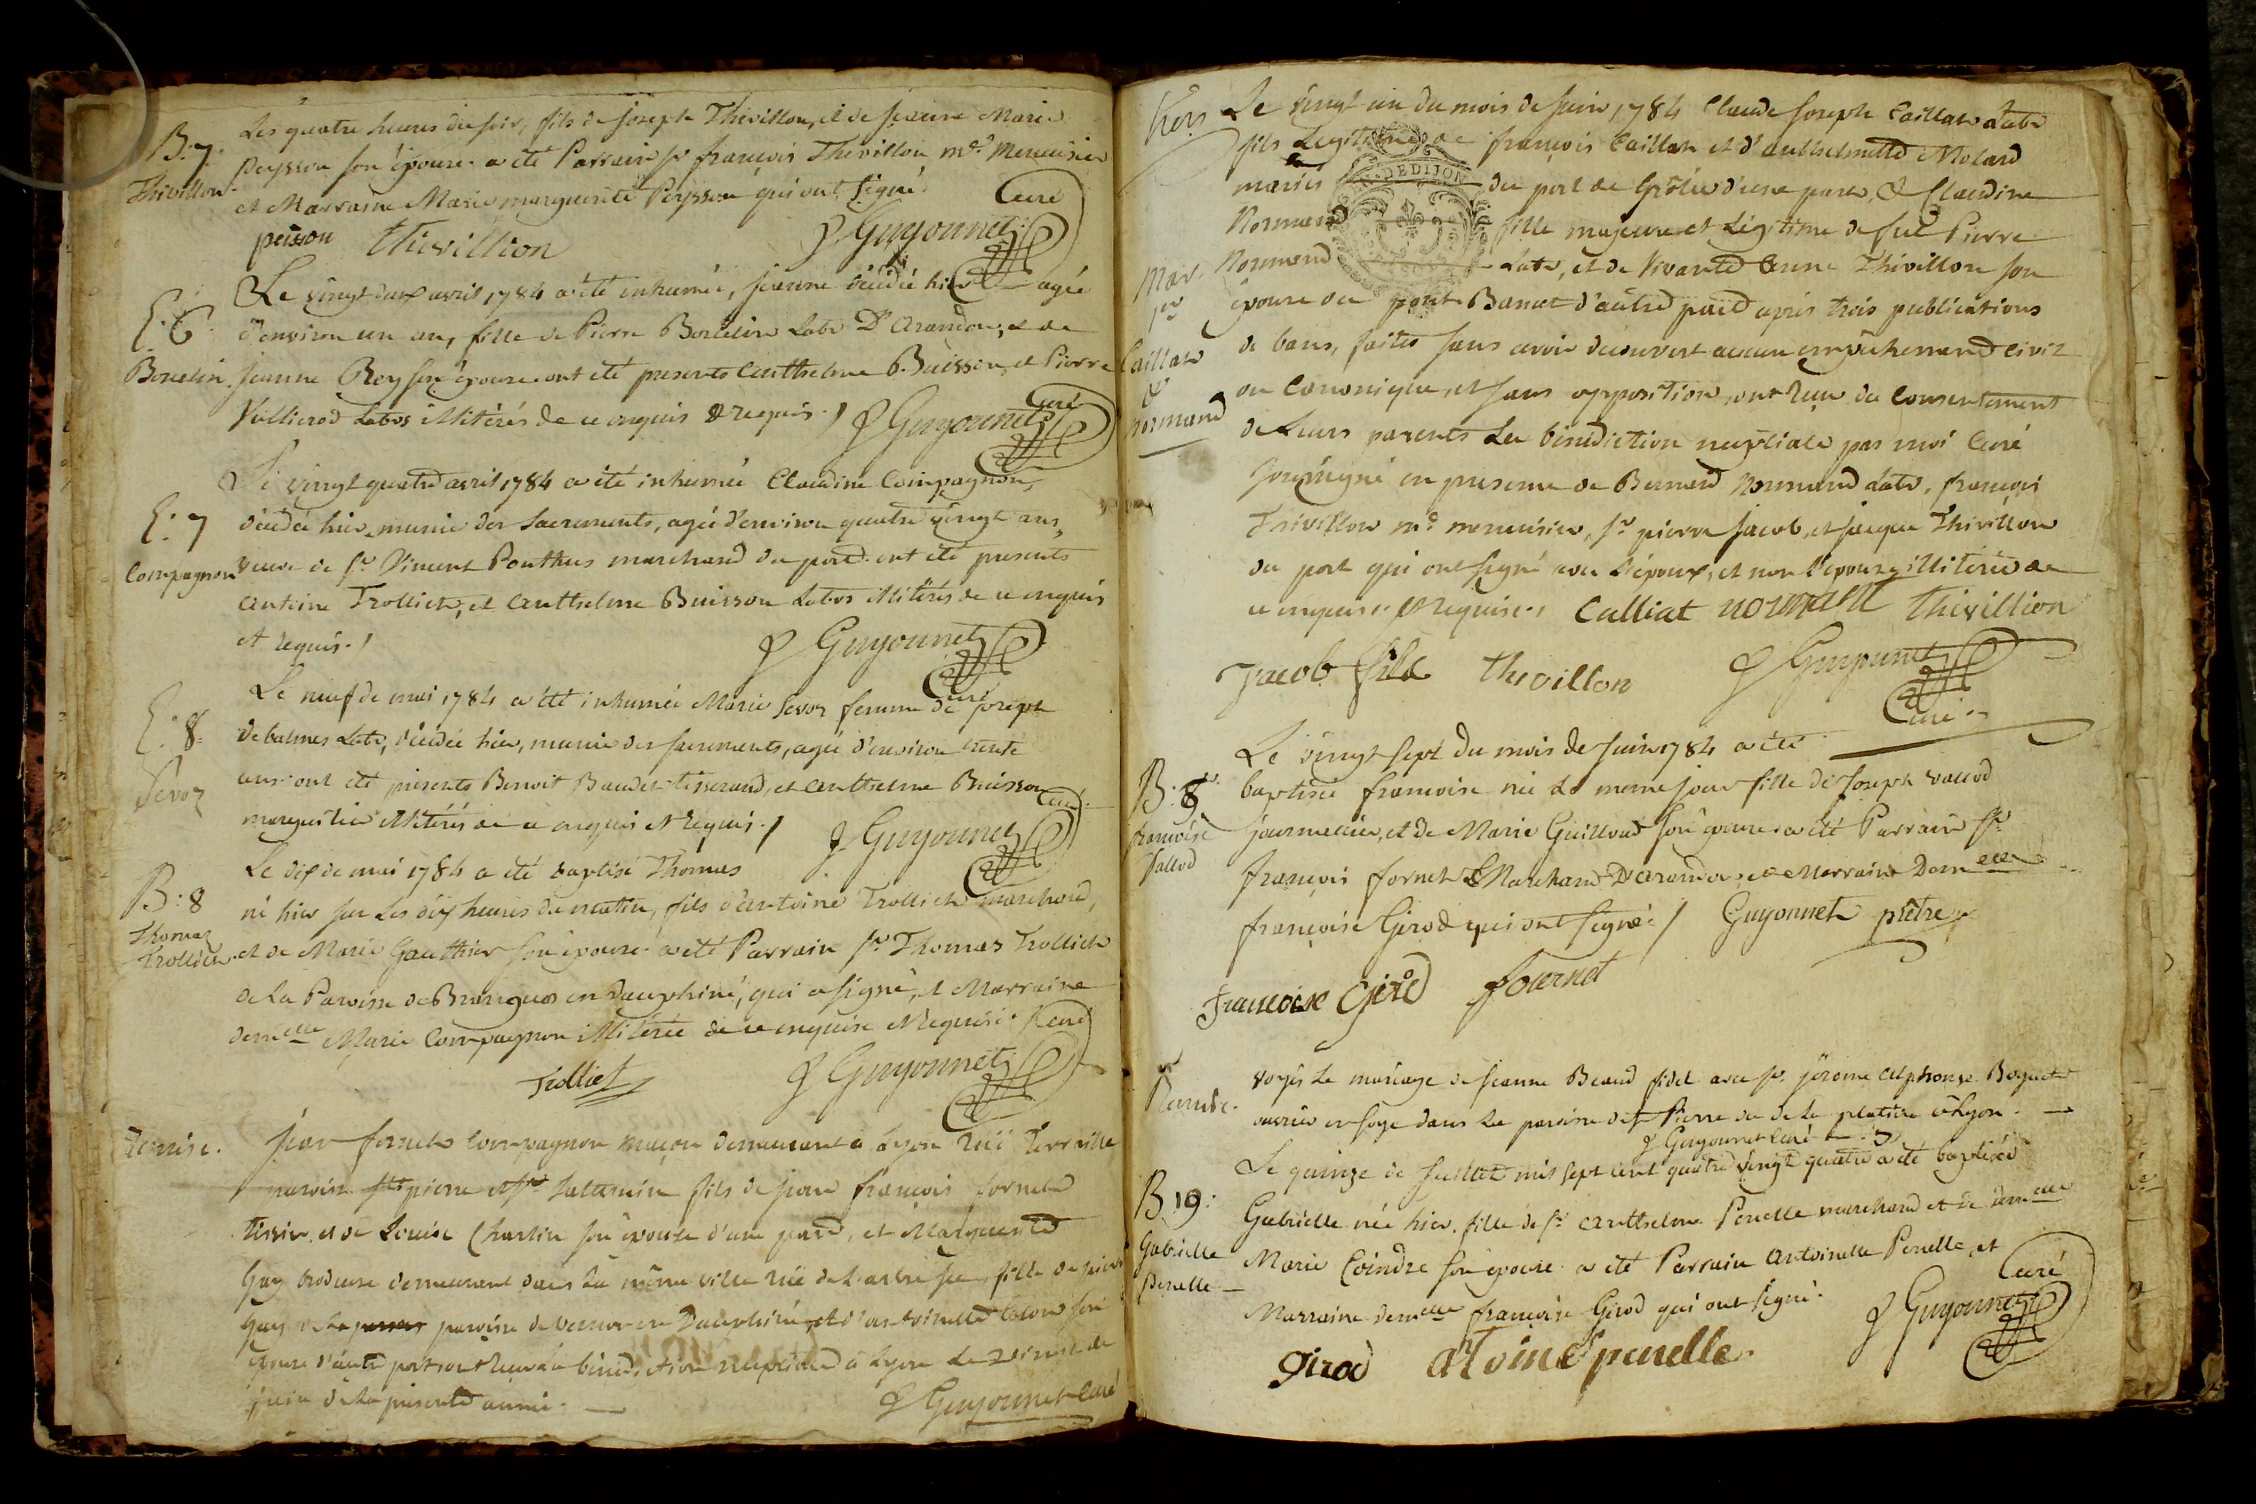 B: 7.
Thivillon
Les quatre heures du soir, fils de joseph Thivillon, et de jeanne Marie
Peysson son épouse. a été Parrain sr françois Thivillon md. Menuisier
et Marraine Marie marguerite Peysson qui ont signé.
peisson thivillion J Guyonnet Curé
E: 6
Boucelin
Le vingt deux avril 1784 a été inhumée, jeanne décédée hier agée
d'environ un an, fille de Pierre labr D'arandon, et de
jeanne Rey son épouse. ont été presents anthelme Buisson, et Pierre
labrs illitérés de ce enquis & requis ./ J Guyonnet Curé
E: 7
Compagnon
Le vingt quatre avril 1784 a été inhumée Claudine Compagnon,
décédée hier, munie des Sacrements, agée d'environ quatre vingt ans,
veuve de sr. Vincent Ponthus marchand du port. ont été presents
antoine Trolliet, et anthelme Buisson labrs illitérés de ce enquis
et requis ./ J Guyonnet Curé
E: 8
Sevoz
Le neuf de mai 1784 a été inhumée Marie Sevoz femme de joseph
debalmes labr, décédée hier, munie des sacrements, agée d'environ trente
ans. ont été présents Benoit Baudet tisserand, et anthelme Buisson
marguillier illitérés de ce enquis et requis ./ J Guyonnet Curé
B: 8
Thomas
Trolliet
Le dix de mai 1784 a été baptisé Thomas
né hier sur les dix heures du matin, fils d'antoine Trolliet marchand,
et de Marie Gauthier son épouse. a été Parrain sr. Thomas Trolliet
de la Paroisse de Brangues en dauphiné, qui a signé, et Marraine
demelle Marie Compagnon illitérée de ce enquise et requise. Curé
Trolliet J Guyonnet
Remise.
jean fornet compagnon maçon demeurant a Lyon rüe
paroisse st pierre et st Saturnin fils de jean françois fornet
tissier, et de Louise Charlin son épouse d'une part, et Marguerite
Guy brodeuse demeurant dans la même ville rüe de l'arbre sec, fille de
Guy de la paroisse de en Dauphiné, et d'antoinette son
épouse d'autre part ont reçu la bénédiction nuptiale à Lyon le de
juin de la présente année. J Guyonnet Curé
Mar.
Caillat
&
Normand
Le vingt un du mois de juin 1784 Claude joseph Caillat labr
fils Legitime de françois Caillat et d'anthelmette Molard
mariés du port de Groslée d'une part, & Claudine
Normand fille majeure et Légitime de feu Pierre
Normand labr, et de vivante anne Thivillon son
épouse du d'autre part après trois publications
de bans, faites sans avoir découvert aucun empêchement civil
ou canonique, et sans opposition, ont reçu du consentement
de leurs parents la bénédiction nuptiale par moi Curé
soussigné en presence de Bernard Normand labr, françois
Thivillon md menuisier, sr. pierre jacob, et jacque Thivillon
du port qui ont signé avec l'époux, et non l'épouse illitérée de
ce enquise, & requise. / Calliat normand thivillion
Jacob fils thivillon J Guyonnet Curé
B: 8
françoise
Vallod
Le vingt sept du mois de juin 1784 a été
baptisée francoise née le même jour fille de joseph vallod
journalier, et de Marie Guillard son épouse. a été Parrain sr
françois fornet Marchand D'arandon, et Marraine Demelle
françoise Girod qui ont signé / Guyonnet prêtre
francoise Girod fournet
Remise.
voyés le mariage de jeanne Beaud fidel avec sr. jérome alphonse
ouvrier en soye dans la paroisse de st Pierre de la platière à Lyon.
J Guyonnet Curé
B 9:
Gabrielle
Penelle
Le quinze de juillet mil sept cent quatre vingt quatre a été baptisée
Gabrielle née hier, fille de sr. anthelme Penelle marchand et de demelle
Marie Coindre son épouse. a été Parrain antoine Penelle, et
Marraine demelle françoise Girod qui ont signé.
Girod atoine penelle J Guyonnet Curé